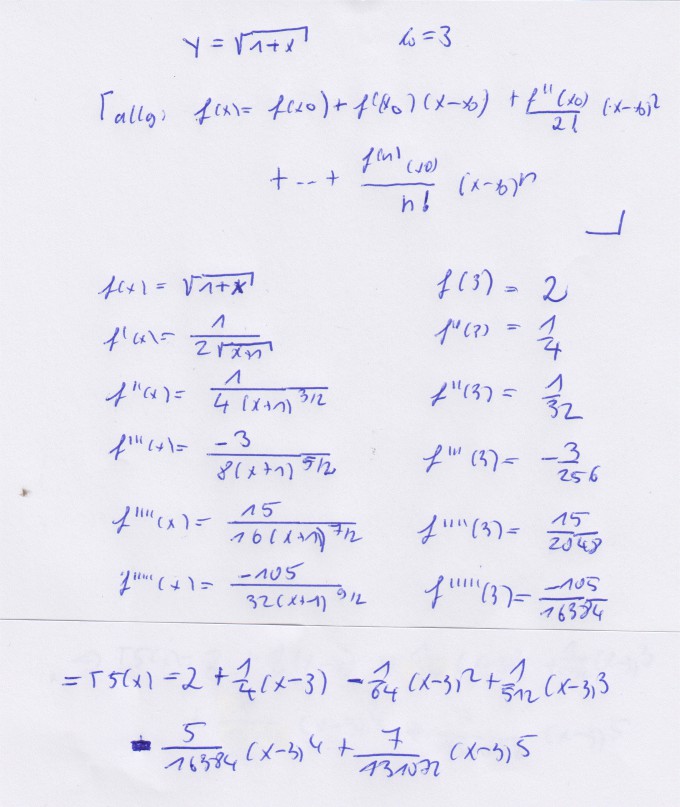 y = √1+x x0 = 3
⌈ allg: f(x) = f(x0) + f'(x0) (x-x0) + f''(x0)/2! (x-x0)²
+ ... + f(n)(x0)/n! (x-x0)ⁿ ⌋
f(x) = √1+x f(3) = 2
f'(x) = 1/2√x+1 f'(3) = 1/4
f''(x) = 1/4(x+1)^3/2 f''(3) = 1/32
f'''(x) = -3/8(x+1)^5/2 f'''(3) = -3/256
f''''(x) = 15/16(x+1)^7/2 f''''(3) = 15/2048
f'''''(x) = -105/32(x+1)^9/2 f'''''(3) = -105/16384
= T5(x) = 2 + 1/4(x-3) - 1/64(x-3)² + 1/512(x-3)³
- 5/16384(x-3)⁴ + 7/131072(x-3)⁵